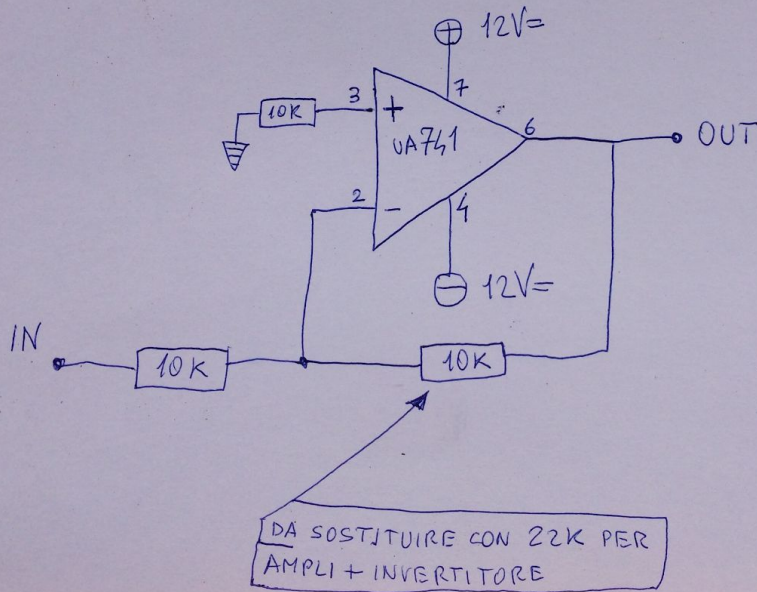 12V=
7
3
10K
+
UA741
6
OUT
2
-
4
12V=
IN
10K
10K
DA SOSTITUIRE CON 22K PER
AMPLI + INVERTITORE